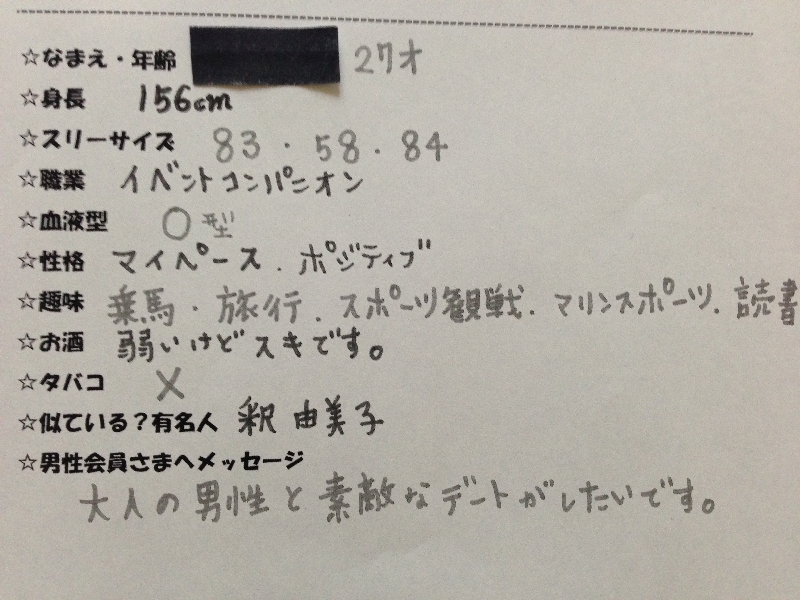 ☆なまえ・年齢 27才
☆身長 156cm
☆スリーサイズ 83・58・84
☆職業 イベントコンパニオン
☆血液型 O型
☆性格 マイペース．ポジティブ
☆趣味 乗馬・旅行．スポーツ観戦．マリンスポーツ．読書
☆お酒 弱いけどスキです。
☆タバコ ×
☆似ている？有名人 釈 由美子
☆男性会員さまへメッセージ
大人の男性と素敵なデートがしたいです。